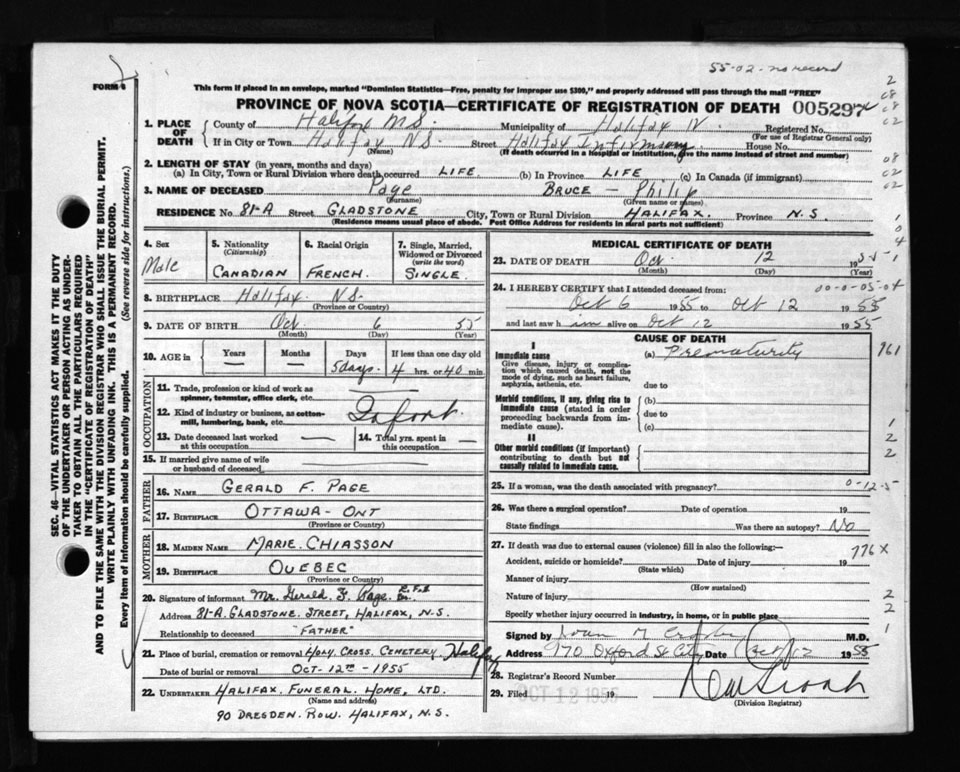 55-02-no record
FORM 6
This form if placed in an envelope, marked "Dominion Statistics—Free, penalty for improper use $300," and properly addressed will pass through the mail "FREE"
PROVINCE OF NOVA SCOTIA—CERTIFICATE OF REGISTRATION OF DEATH 005297
1. PLACE OF DEATH County of Halifax N.S. Municipality of Halifax Registered No.
(For use of Registrar General only)
If in City or Town Halifax N.S. Street Halifax Infirmary House No.
(Name) (If death occurred in a hospital or institution, give the name instead of street and number)
2. LENGTH OF STAY (in years, months and days)
(a) In City, Town or Rural Division where death occurred LIFE. (b) In Province LIFE (c) In Canada (if immigrant)
3. NAME OF DECEASED Page BRUCE — Philip
(Surname) (Given name or names)
RESIDENCE No. 81-A Street GLADSTONE City, Town or Rural Division HALIFAX. Province N.S.
(Residence means usual place of abode. Post Office Address for residents in rural parts not sufficient)
4. Sex Male
5. Nationality (Citizenship) CANADIAN
6. Racial Origin FRENCH.
7. Single, Married, Widowed or Divorced (write the word) SINGLE.
8. BIRTHPLACE Halifax N.S.
(Province or Country)
9. DATE OF BIRTH Oct. 6 55
(Month) (Day) (Year)
10. AGE in Years — Months — Days 5 days. If less than one day old 4 hrs. or 40 min.
OCCUPATION
11. Trade, profession or kind of work as spinner, teamster, office clerk, etc.
12. Kind of industry or business, as cotton-mill, lumbering, bank, etc. Infant.
13. Date deceased last worked at this occupation —
14. Total yrs. spent in this occupation —
15. If married give name of wife or husband of deceased
FATHER
16. NAME GERALD F. PAGE
17. BIRTHPLACE OTTAWA - ONT
(Province or Country)
MOTHER
18. MAIDEN NAME MARIE. CHIASSON
19. BIRTHPLACE QUEBEC
(Province or Country)
20. Signature of informant Mr. Gerald F. Page.
Address 81-A. GLADSTONE. STREET, HALIFAX, N.S.
Relationship to deceased "FATHER"
21. Place of burial, cremation or removal HOLY. CROSS. CEMETERY. Halifax
Date of burial or removal OCT-12TH-1955
22. UNDERTAKER HALIFAX. FUNERAL. HOME, LTD.
(Name and address)
90 DRESDEN. ROW. HALIFAX, N.S.
MEDICAL CERTIFICATE OF DEATH
23. DATE OF DEATH Oct. 12 1955
(Month) (Day) (Year)
24. I HEREBY CERTIFY that I attended deceased from: 00-0-05-04
Oct 6 1955 to Oct 12 1955
and last saw him alive on Oct 12 1955
CAUSE OF DEATH
I
Immediate cause (a) Prematurity 961
Give disease, injury or complication which caused death, not the mode of dying, such as heart failure, asphyxia, asthenia, etc.
due to
Morbid conditions, if any, giving rise to immediate cause (stated in order proceeding backwards from immediate cause).
(b)
due to
(c)
II
Other morbid conditions (if important) contributing to death but not causally related to immediate cause.
25. If a woman, was the death associated with pregnancy? 0-12-5
26. Was there a surgical operation? Date of operation 19
State findings Was there an autopsy? No
27. If death was due to external causes (violence) fill in also the following:— 776X
Accident, suicide or homicide? Date of injury 19
(State which)
Manner of injury
(How sustained)
Nature of injury
Specify whether injury occurred in industry, in home, or in public place
Signed by M.D.
Address 170 Oxford St. City Date Oct 12 1955
28. Registrar's Record Number
29. Filed OCT 12 1955 19
(Division Registrar)
SEC. 46—VITAL STATISTICS ACT MAKES IT THE DUTY
OF THE UNDERTAKER OR PERSON ACTING AS UNDER-
TAKER TO OBTAIN ALL THE PARTICULARS REQUIRED
IN THE "CERTIFICATE OF REGISTRATION OF DEATH"
AND TO FILE THE SAME WITH THE DIVISION REGISTRAR WHO SHALL ISSUE THE BURIAL PERMIT.
WRITE PLAINLY WITH UNFADING INK. THIS IS A PERMANENT RECORD.
Every item of information should be carefully supplied. (See reverse side for instructions.)